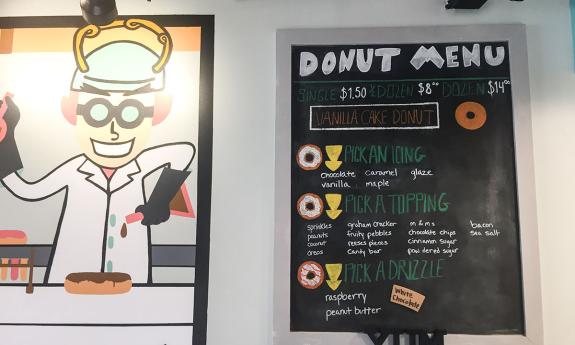 DONUT MENU
SINGLE $1.50 ½ DOZEN $8.00 DOZEN $14.00
VANILLA CAKE DONUT
PICK AN ICING
chocolate caramel glaze
vanilla maple
PICK A TOPPING
sprinkles graham cracker m & m s bacon
peanuts fruity pebbles chocolate chips sea salt
coconut reeses pieces cinnamon sugar
oreos candy bar powdered sugar
PICK A DRIZZLE
raspberry
peanut butter
White
Chocolate
YUM